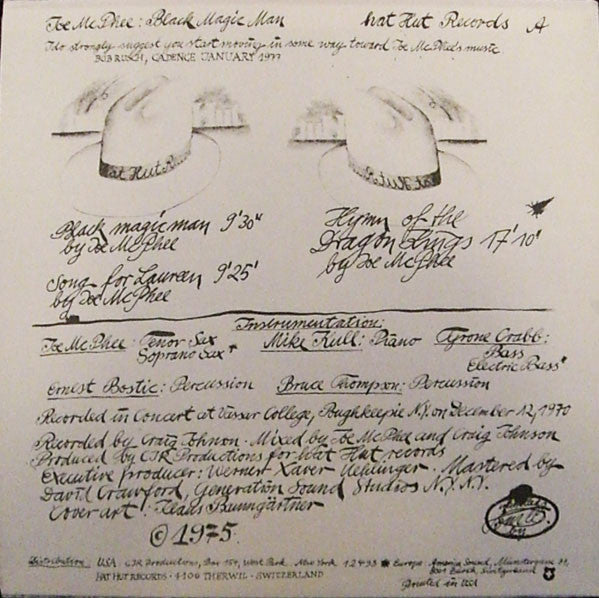 Joe McPhee: Black Magic Man
hat Hut Records A
I do strongly suggest you start moving in some way toward Joe McPhee's music
BOB RUSCH, CADENCE JANUARY 1977
at Hut R
Black magic man 9'30"
by Joe McPhee
Song for Lauren 9'25'
by Joe McPhee
Hymn of the
Dragon Kings 17'10'
by Joe McPhee
Instrumentation:
Joe McPhee: Tenor Sax
Soprano Sax*
Mike Kull: Piano
Tyrone Crabb:
Bass
Electric Bass*
Ernest Bostic: Percussion
Bruce Thompson: Percussion
Recorded in Concert at Vassar College, Poughkeepsie N.Y. on December 12, 1970
Recorded by Craig Johnson · Mixed by Joe McPhee and Craig Johnson
Produced by CJR Productions for Hat Hut records
Executive producer: Werner Xaver Uehlinger · Mastered by
David Crawford, Generation Sound Studios N.Y. N.Y.
Cover art: Klaus Baumgärtner
© 1975
by
Distribution: USA CJR Productions, Box 154, West Park, New York 12493 * Europe America Sound,
HAT HUT RECORDS · 4106 THERWIL · SWITZERLAND
8001 Zürich, Switzerland
Printed in USA